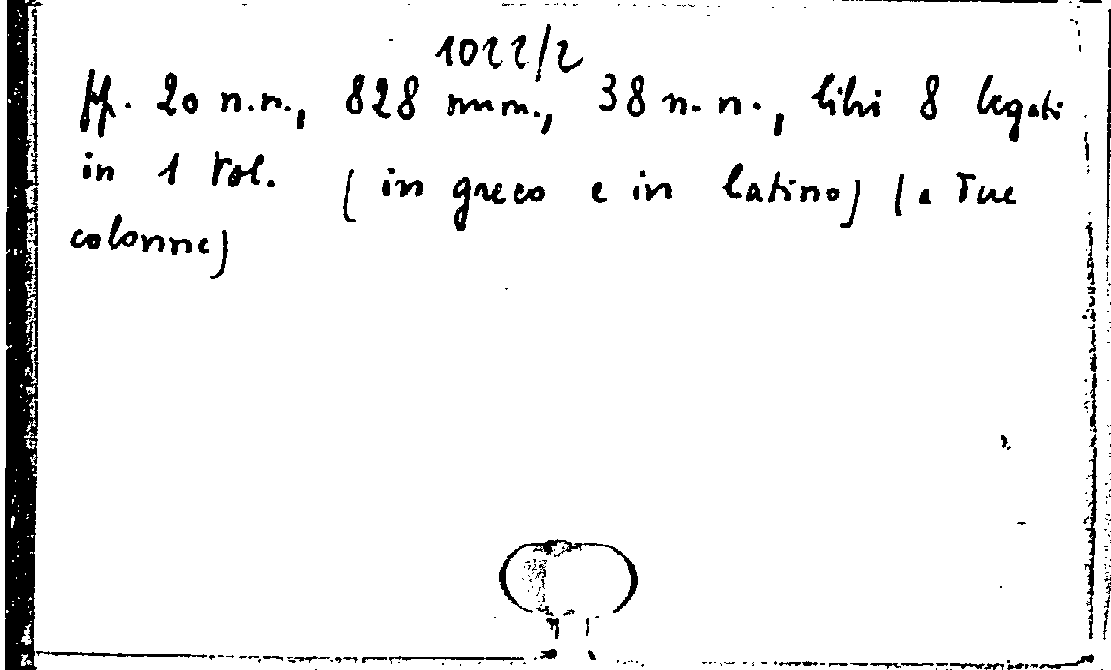 1022/2
pp. 20 n.n., 828 num., 38 n.n., libri 8 legati
in 1 vol. (in greco e in latino) (a due
colonne)